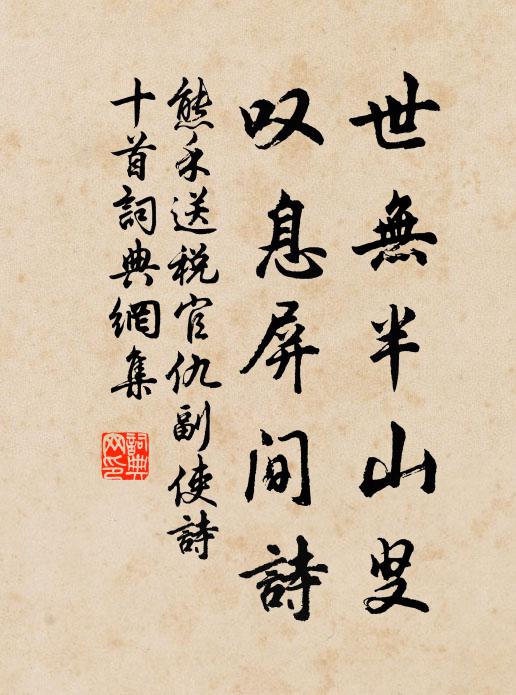 世無半山叟
叹息屏间詩
熊禾送税官仇副使詩
十首詞典網集
詞典网印